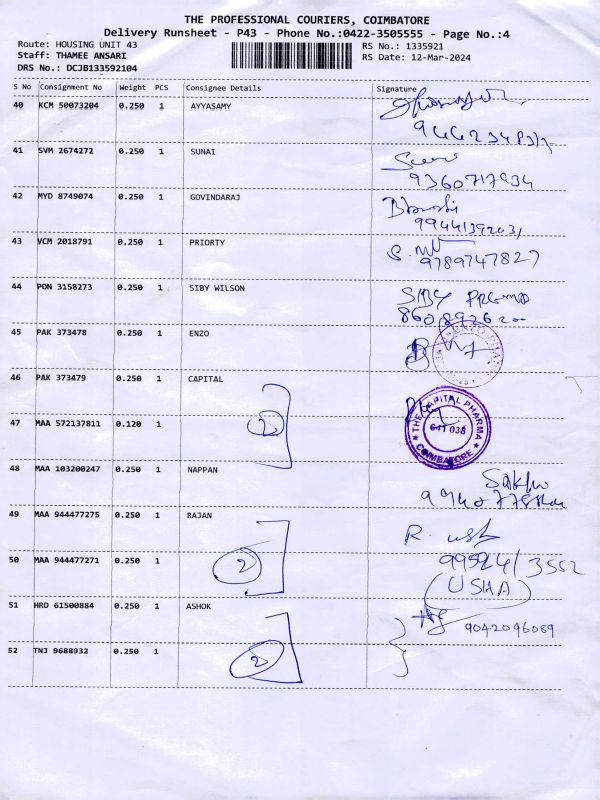 THE PROFESSIONAL COURIERS, COIMBATORE
Delivery Runsheet - P43 - Phone No.:0422-3505555 - Page No.:4
Route: HOUSING UNIT 43 RS No.: 1335921
Staff: THAMEE ANSARI RS Date: 12-Mar-2024
DRS No.: DCJB133592104
S No Consignment No Weight PCS Consignee Details Signature
40 KCM 50073204 0.250 1 AYYASAMY
41 SVM 2674272 0.250 1 SUNAI
9360717934
42 MYD 8749074 0.250 1 GOVINDARAJ
43 VCM 2018791 0.250 1 PRIORTY
9789747827
44 PON 3158273 0.250 1 SIBY WILSON
45 PAK 373478 0.250 1 ENZO
46 PAK 373479 0.250 1 CAPITAL
THE CAPITAL PHARMA
641 038
COIMBATORE
47 MAA 572137811 0.120 1
2
48 MAA 103200247 0.250 1 NAPPAN
49 MAA 944477275 0.250 1 RAJAN
50 MAA 944477271 0.250 1
2
(USHA)
51 HRD 61500884 0.250 1 ASHOK
9042046089
52 TNJ 9688932 0.250 1
2